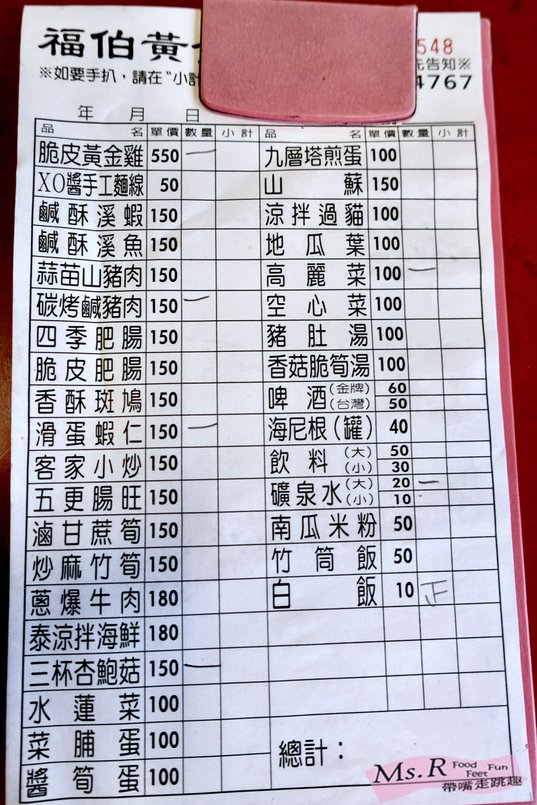 福伯黃
548
※如要手扒，請在“小計
先告知※
4767
年 月 日
品名 單價 數量 小計 品名 單價 數量 小計
脆皮黃金雞 550 一 九層塔煎蛋 100
XO醬手工麵線 50 山蘇 150
鹹酥溪蝦 150 涼拌過貓 100
鹹酥溪魚 150 地瓜葉 100
蒜苗山豬肉 150 高麗菜 100 一
碳烤鹹豬肉 150 一 空心菜 100
四季肥腸 150 豬肚湯 100
脆皮肥腸 150 香菇脆筍湯 100
香酥斑鳩 150 啤酒(金牌) 60 (台灣) 50
滑蛋蝦仁 150 一 海尼根(罐) 40
客家小炒 150 飲料(大) 50 (小) 30
五更腸旺 150 礦泉水(大) 20 一 (小) 10
滷甘蔗筍 150 南瓜米粉 50
炒麻竹筍 150 竹筒飯 50
蔥爆牛肉 180 白飯 10 正
泰涼拌海鮮 180
三杯杏鮑菇 150 一
水蓮菜 100
菜脯蛋 100
醬筍蛋 100
總計：
Ms.R Food Fun Feet
帶嘴走跳趣